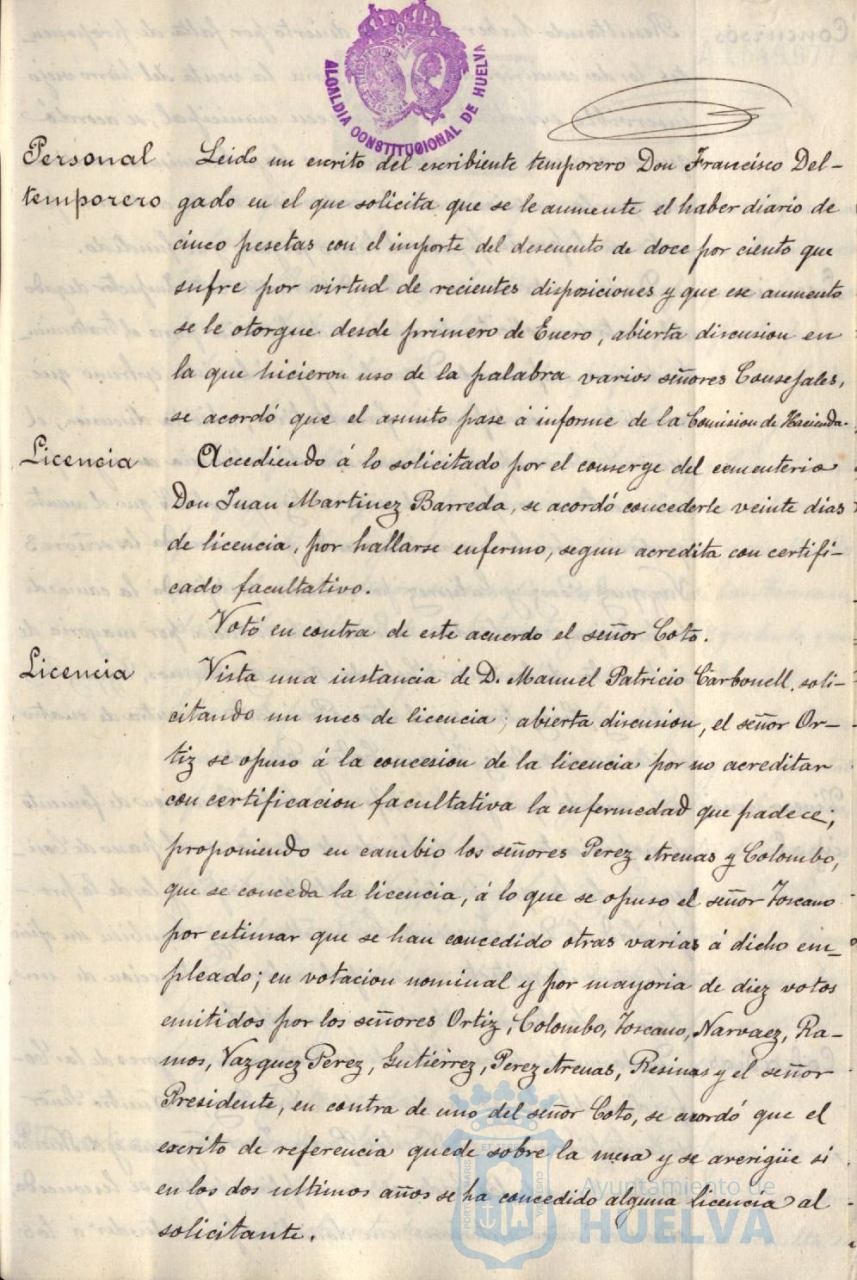 ALCALDIA CONSTITUCIONAL DE HUELVA
Personal
temporero
Leido un escrito del escribiente temporero Don Francisco Del-
gado en el que solicita que se le aumente el haber diario de
cinco pesetas con el importe del descuento de doce por ciento que
sufre por virtud de recientes disposiciones y que ese aumento
se le otorgue desde primero de Enero, abierta discusion en
la que hicieron uso de la palabra varios señores Consejales,
se acordó que el asunto pase á informe de la Comision de Hacienda.
Licencia
Accediendo á lo solicitado por el conserge del cementerio
Don Juan Martinez Barreda, se acordó concederle veinte dias
de licencia, por hallarse enfermo, segun acredita con certifi-
cado facultativo.
Votó en contra de este acuerdo el señor Coto.
Licencia
Vista una instancia de D. Manuel Patricio Carbonell, soli-
citando un mes de licencia; abierta discusion, el señor Or-
tiz se opuso á la concesion de la licencia por no acreditar
con certificacion facultativa la enfermedad que padece;
proponiendo en cambio los señores Perez Arenas y Colombo,
que se conceda la licencia, á lo que se opuso el señor Toscano
por estimar que se han concedido otras varias á dicho em-
pleado; en votacion nominal y por mayoria de diez votos
emitidos por los señores Ortiz, Colombo, Toscano, Narvaez, Ra-
mos, Vazquez Perez, Gutiérrez, Perez Arenas, Resinas y el señor
Presidente, en contra de uno del señor Coto, se acordó que el
escrito de referencia quede sobre la mesa y se averigüe si
en los dos ultimos años se ha concedido alguna licencia al
solicitante.
Ayuntamiento de
HUELVA